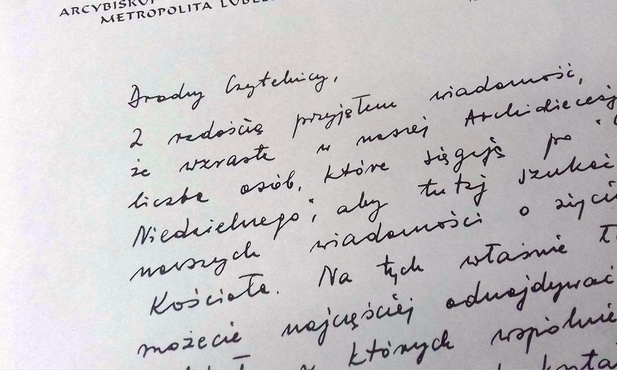 ARCYBISKUP
METROPOLITA LUBEL
Drodzy Czytelnicy,
Z radością przyjąłem wiadomość,
że wzrasta w naszej Archidiecezji
liczba osób, które sięgają po "G
Niedzielnego", aby tutaj szukać
nowszych wiadomości o życiu
Kościoła. Na tych właśnie ł
możecie najczęściej odnajdywać
których wspólnie
kszta